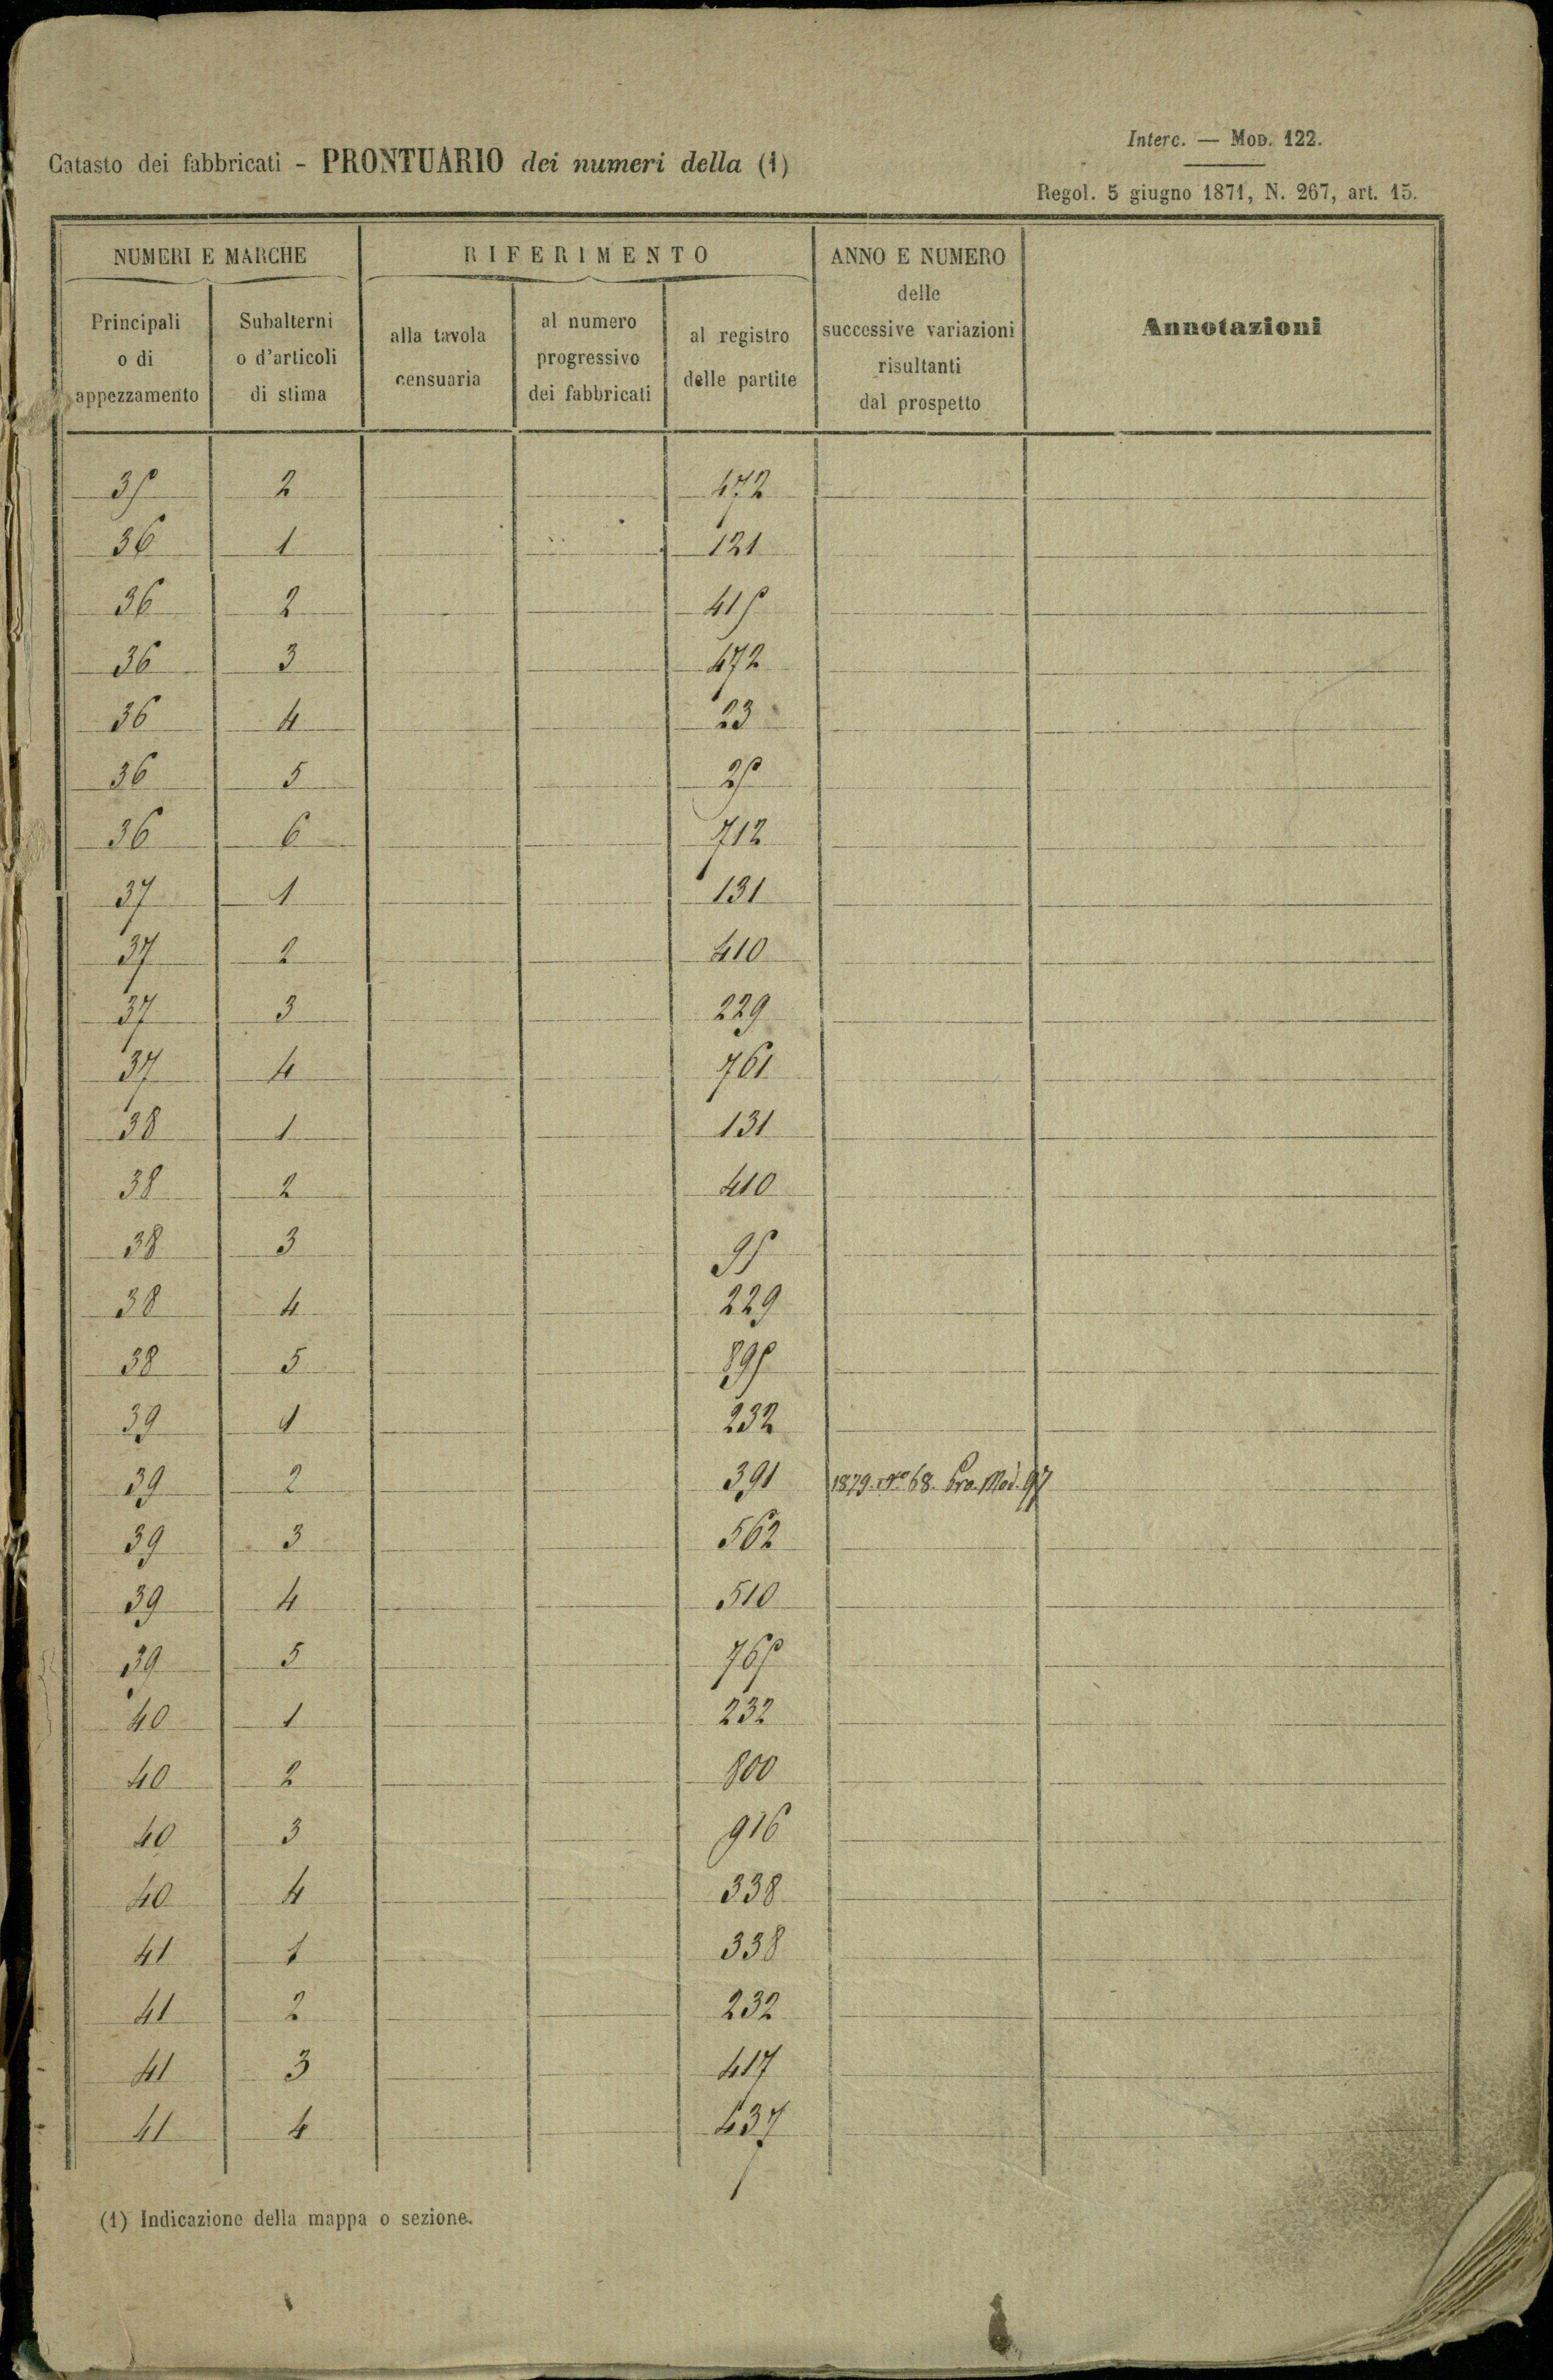 Interc. — Mod. 122.
Catasto dei fabbricati - PRONTUARIO dei numeri della (1)
Regol. 5 giugno 1871, N. 267, art. 15.
NUMERI E MARCHE
RIFERIMENTO
ANNO E NUMERO
delle
successive variazioni
risultanti
dal prospetto
Annotazioni
Principali
o di
appezzamento
Subalterni
o d'articoli
di stima
alla tavola
censuaria
al numero
progressivo
dei fabbricati
al registro
delle partite
35 2 472
36 1 121
36 2 415
36 3 472
36 4 23
36 5 25
36 6 712
37 1 131
37 2 410
37 3 229
37 4 761
38 1 131
38 2 410
38 3 95
38 4 229
38 5 895
39 1 232
39 2 391 1879. No 68. Mod. 97
39 3 562
39 4 510
39 5 765
40 1 232
40 2 800
40 3 916
40 4 338
41 1 338
41 2 232
41 3 417
41 4 437
(1) Indicazione della mappa o sezione.